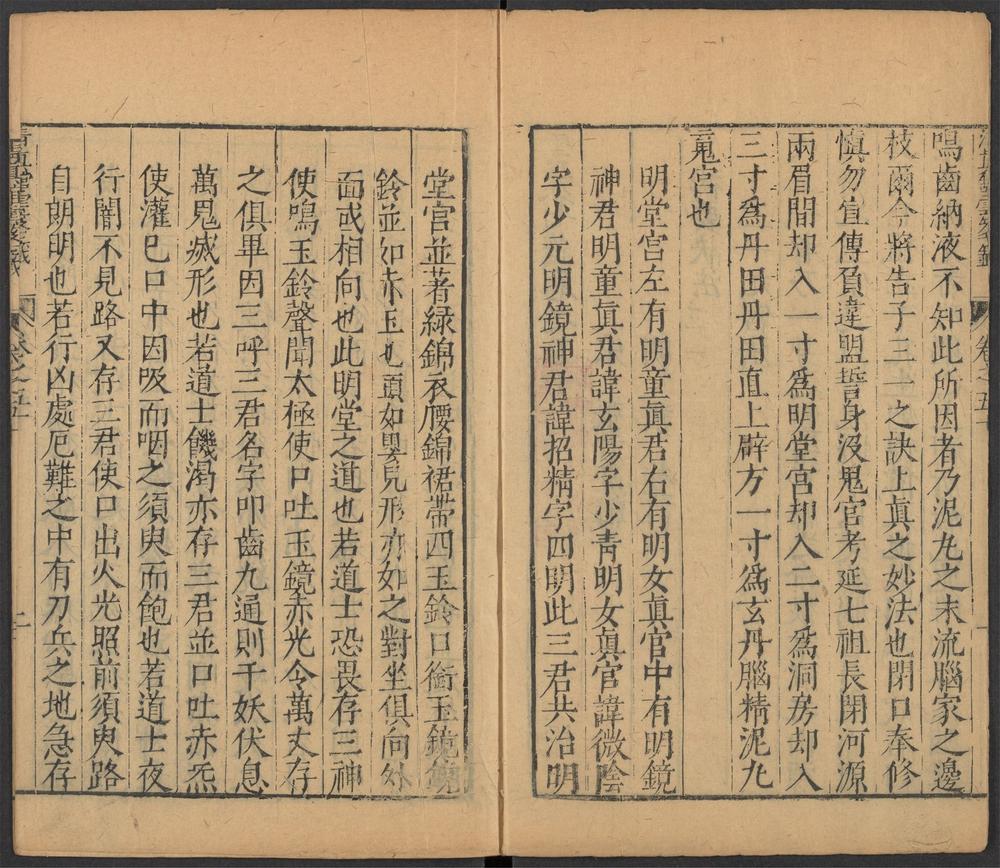 鳴齒納液不知此所因者乃泥丸之末流腦家之邊
枝爾今將告子三一之訣上眞之妙法也閉口奉修
愼勿宣傳負違盟誓身没鬼官考延七祖長閉河源
兩眉間却入一寸爲明堂宫却入二寸爲洞房却入
三寸爲丹田丹田直上辟方一寸爲玄丹腦精泥丸
䰟宫也
明堂宫左有明童眞君右有明女眞官中有明鏡
神君明童眞君諱玄陽字少青明女眞官諱微陰
字少元明鏡神君諱招精字四明此三君共治明
堂宫並著緑錦衣腰錦裙帶四玉鈴口銜玉鏡鏡
鈴並如赤玉也頭如嬰兒形亦如之對坐俱向外
面或相向也此明堂之道也若道士恐畏存三神
使鳴玉鈴聲聞太極使口吐玉鏡赤光令萬丈存
之俱畢因三呼三君名字叩齒九通則千妖伏息
萬鬼滅形也若道士饑渴亦存三君並口吐赤炁
使灌已口中因吸而咽之須臾而飽也若道士夜
行闇不見路又存三君使口出火光照前須臾路
自朗明也若行凶處厄難之中有刀兵之地急存